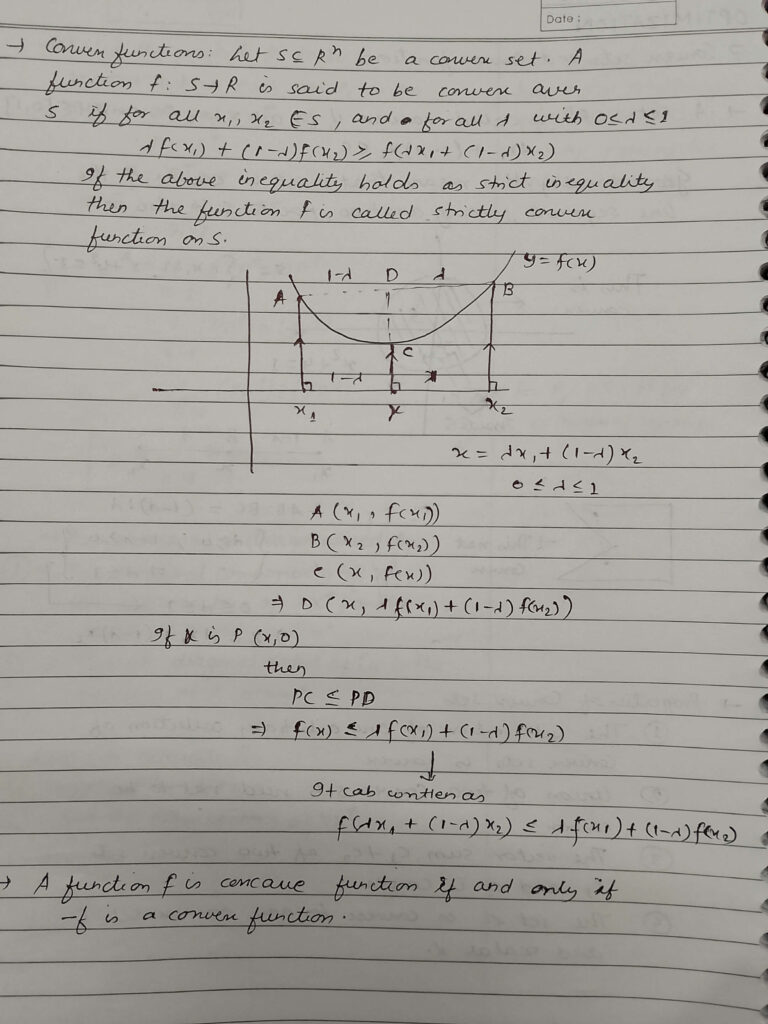 Date :
→ Convex functions: Let S ⊆ Rⁿ be a convex set. A
function f: S→R is said to be convex over
S if for all x₁, x₂ ∈ S, and for all λ with 0≤λ≤1
λf(x₁) + (1-λ)f(x₂) ≥ f(λx₁ + (1-λ)x₂)
If the above inequality holds as strict inequality
then the function f is called strictly convex
function on S.
y = f(x)
1-λ D λ
A B
C
1-λ
x₁ x x₂
x = λx₁ + (1-λ)x₂
0 ≤ λ ≤ 1
A (x₁, f(x₁))
B (x₂, f(x₂))
C (x, f(x))
⇒ D (x, λf(x₁) + (1-λ)f(x₂))
If x is P (x,0)
then
PC ≤ PD
⇒ f(x) ≤ λf(x₁) + (1-λ)f(x₂)
↓
It cab as
f(λx₁ + (1-λ)x₂) ≤ λf(x₁) + (1-λ)f(x₂)
→ A function f is concave function if and only if
-f is a convex function.